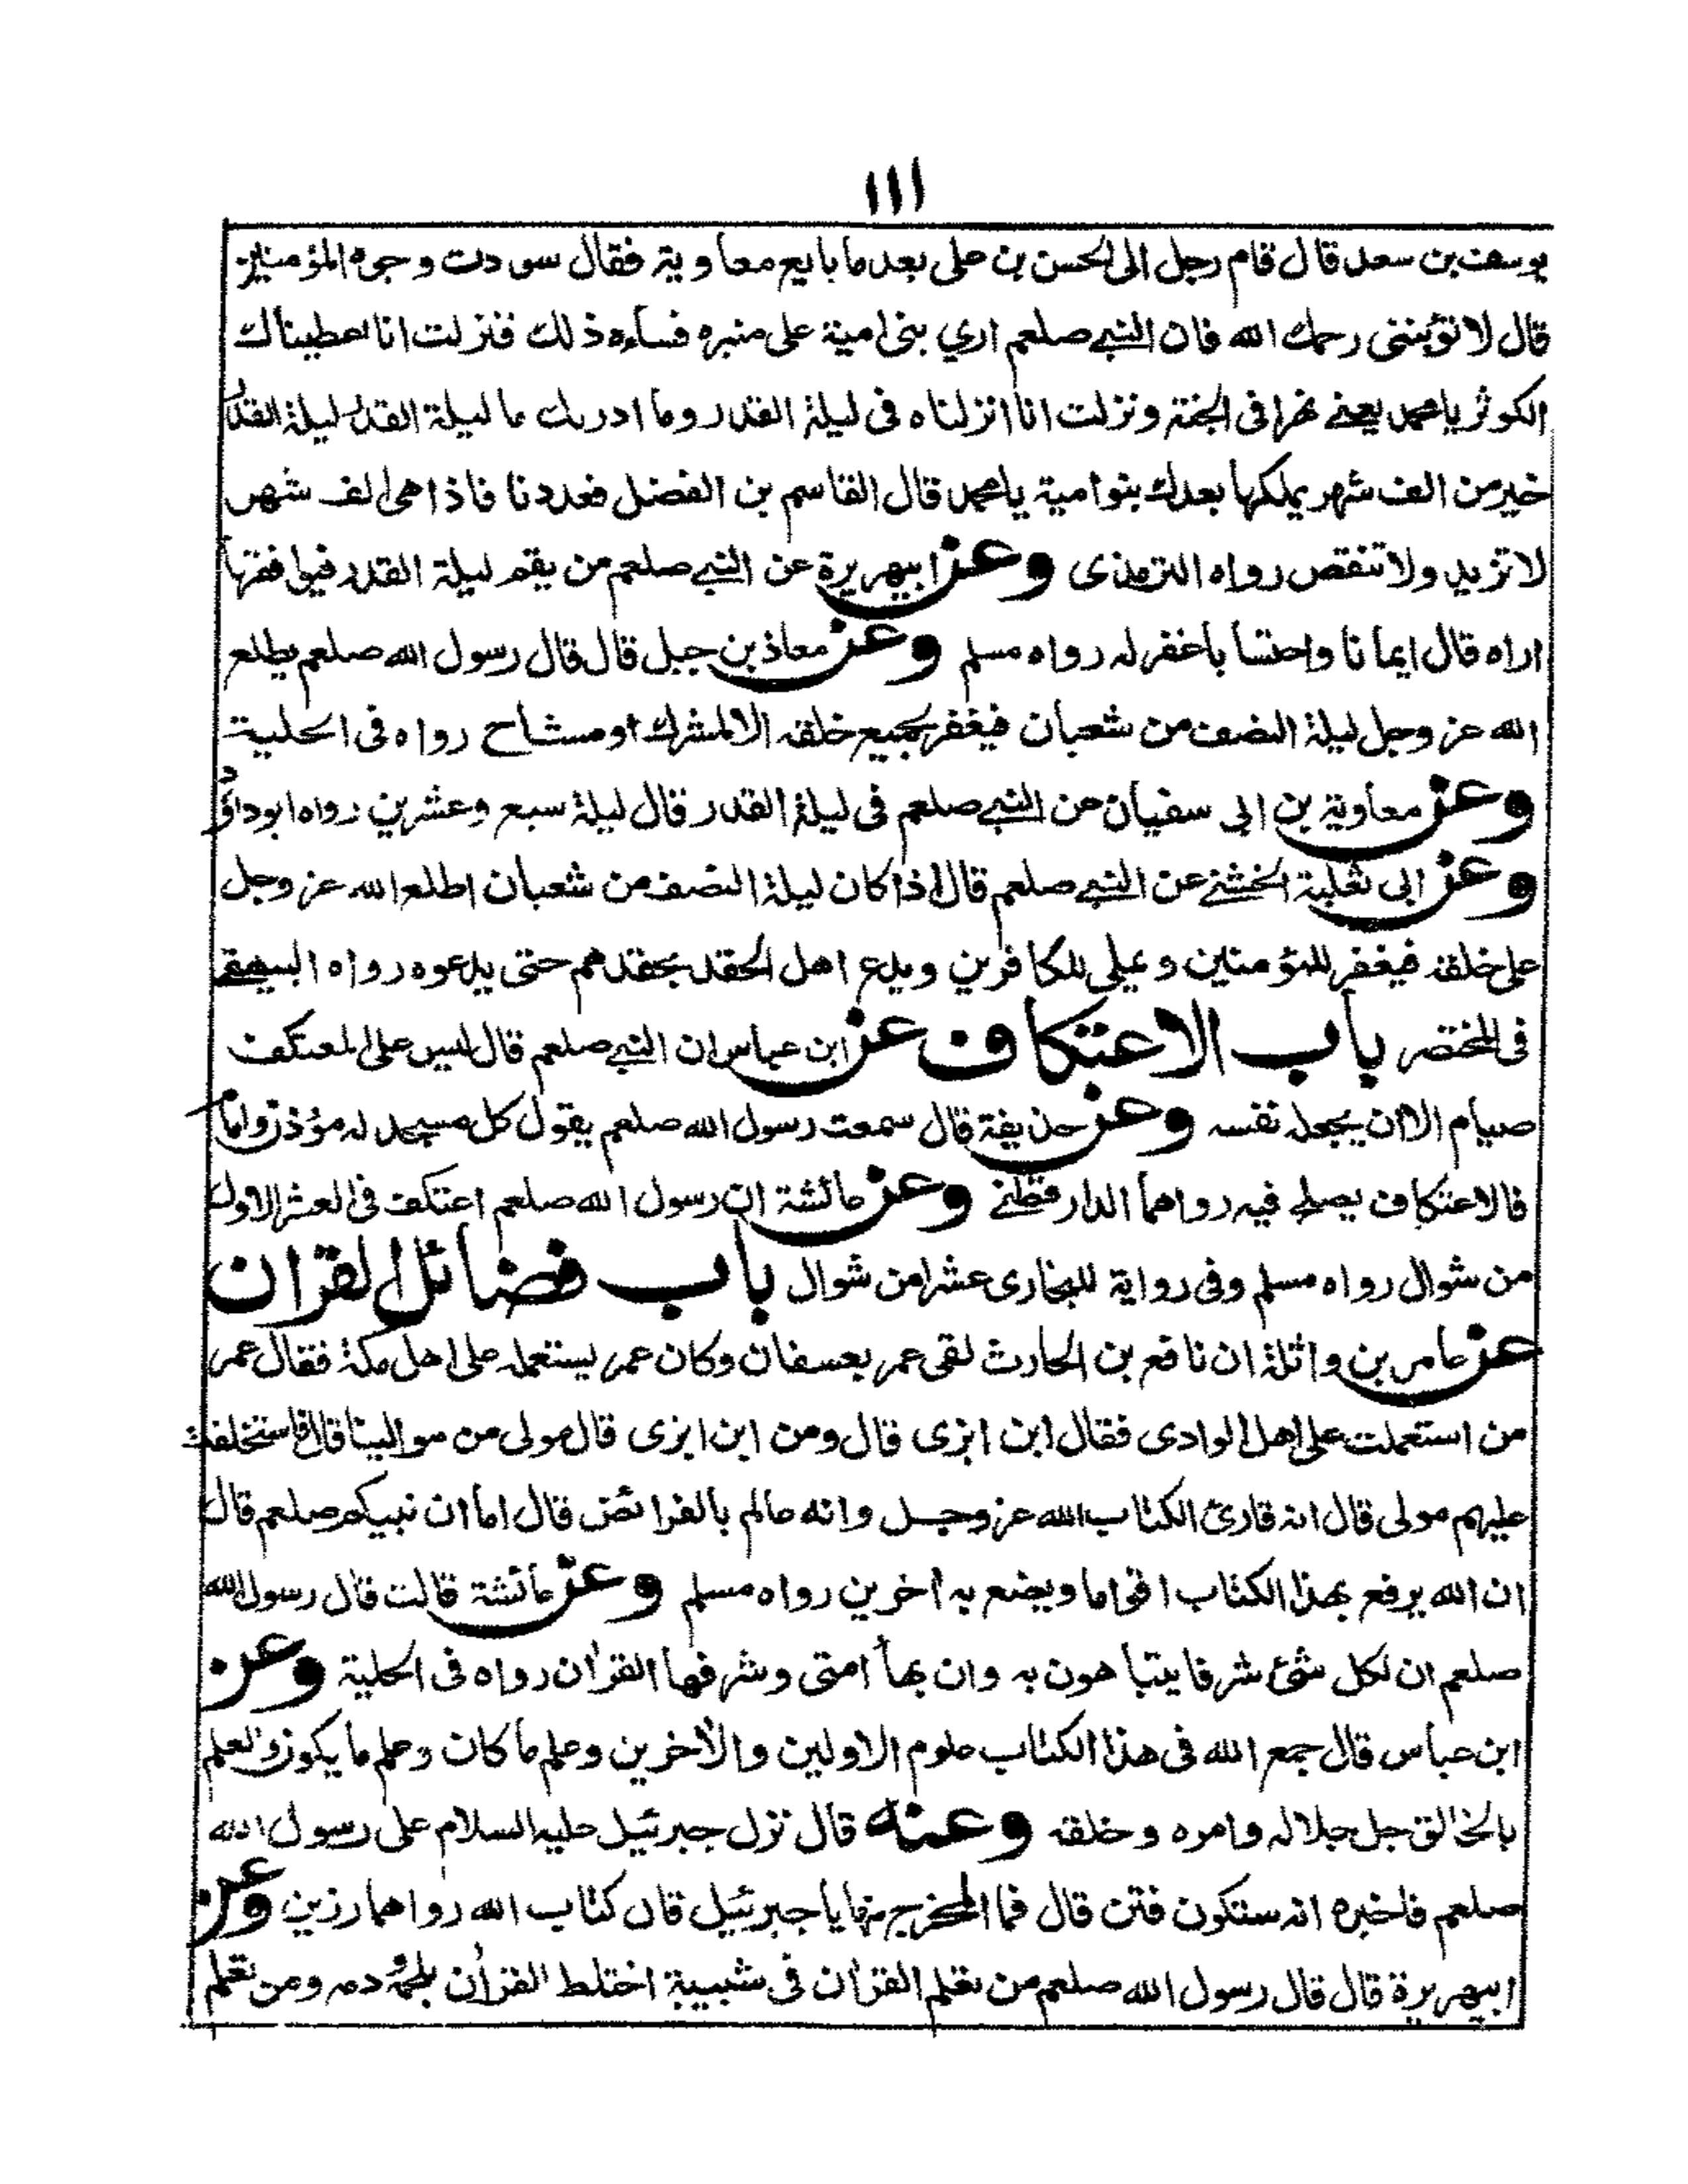 ١١١
يوسف بن سعد قال قام رجل الى الحسن بن على بعد ما بايع معاوية فقال سودت وجوه المؤمنين
قال لا تؤبننى رحمك الله فان النبي صلعم اري بنى امية على منبره فساءه ذلك فنزلت انا اعطيناك
الكوثر يا محمد يعنے نهرا فى الجنة ونزلت انا انزلناه فى ليلة القدر وما ادربك ما ليلة القدر ليلة القدر
خير من الف شهر يملكها بعدك بنو امية يا محمد قال القاسم بن الفضل فعددنا فاذا هى الف شهر
لا تزيد ولا تنقص رواه الترمذى وعن ابيهريرة عن النبي صلعم من يقم ليلة القدر فيوافقها
اراه قال ايمانا واحتسابا غفر له رواه مسلم وعن معاذ بن جبل قال قال رسول الله صلعم يطلع
الله عز وجل ليلة النصف من شعبان فيغفر لجميع خلقه الا لمشرك او مشاح رواه فى الحلية
وعن معاوية بن ابى سفيان عن النبي صلعم فى ليلة القدر قال ليلة سبع وعشرين رواه ابوداؤد
وعن ابى ثعلبة الخشنے عن النبي صلعم قال اذا كان ليلة النصف من شعبان اطلع الله عز وجل
على خلقه فيغفر للمؤمنين ويملى للكافرين ويدع اهل الحقد بحقدهم حتى يدعوه رواه البيهقے
فى المختصر باب الاعتكاف عن ابن عباس ان النبي صلعم قال ليس على المعتكف
صيام الا ان يجعله نفسه وعن حذيفة قال سمعت رسول الله صلعم يقول كل مسجد له مؤذن وامام
فالاعتكاف يصلح فيه رواهما الدارقطنے وعن عائشة ان رسول الله صلعم اعتكف فى العشر الاول
من شوال رواه مسلم وفى رواية للبخارى عشرا من شوال باب فضائل القران
عن عامر بن واثلة ان نافع بن الحارث لقى عمر بعسفان وكان عمر يستعمله على اهل مكة فقال عمر
من استعملت على اهل الوادى فقال ابن ابزى قال ومن ابن ابزى قال مولى من موالينا قال فاستخلفت
عليهم مولى قال انه قارئ الكتاب الله عز وجل وانه عالم بالفرائض قال اما ان نبيكم صلعم قال
ان الله يرفع بهذا الكتاب اقواما ويضع به اخرين رواه مسلم وعن عائشة قالت قال رسول الله
صلعم ان لكل شئ شرفا يتباهون به وان بهاء امتى وشرفها القران رواه فى الحلية وعن
ابن عباس قال جمع الله فى هذا الكتاب علوم الاولين والاخرين وعلم ما كان وعلم ما يكون والعلم
بالخالق جل جلاله وامره وخلقه وعنه قال نزل جبرئيل عليه السلام على رسول الله
صلعم فاخبره انه ستكون فتن قال فما المخرج منها يا جبرئيل قال كتاب الله رواهما رزين وعن
ابيهريرة قال قال رسول الله صلعم من تعلم القران فى شبيبة اختلط القران بلحمه ودمه ومن تعلم